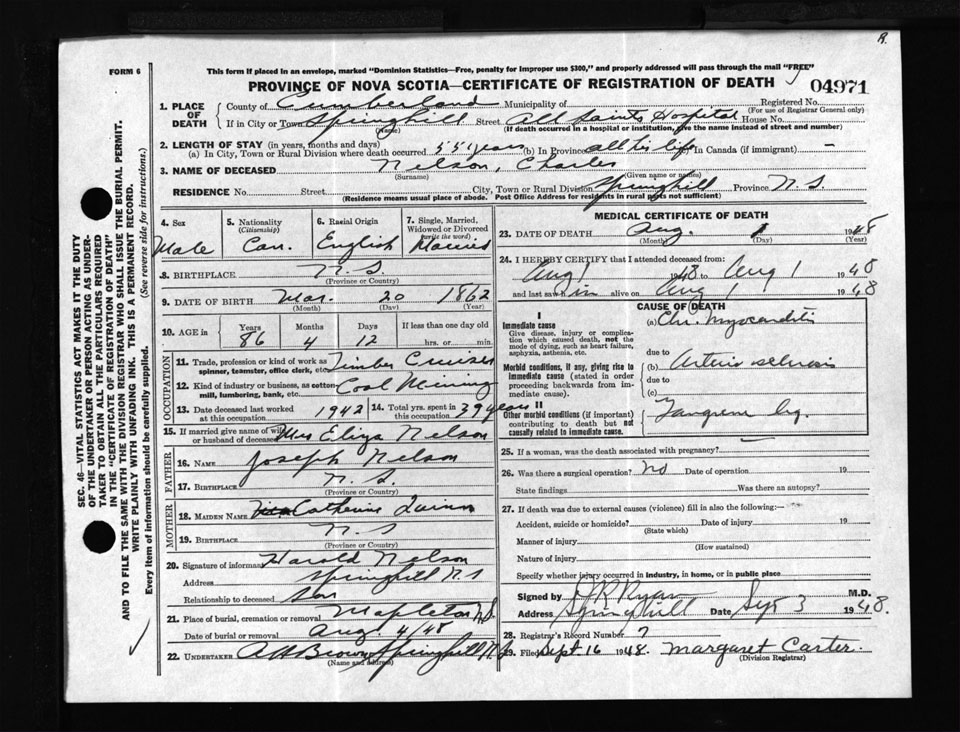 R.
FORM 6
This form if placed in an envelope, marked "Dominion Statistics—Free, penalty for improper use $300," and properly addressed will pass through the mail "FREE"
PROVINCE OF NOVA SCOTIA—CERTIFICATE OF REGISTRATION OF DEATH
04971
1. PLACE OF DEATH
County of Cumberland Municipality of Registered No.
(For use of Registrar General only)
If in City or Town Springhill Street All Saints Hospital House No.
(Name) (If death occurred in a hospital or institution, give the name instead of street and number)
2. LENGTH OF STAY (in years, months and days)
(a) In City, Town or Rural Division where death occurred 55 years (b) In Province all his life (c) In Canada (if immigrant) —
3. NAME OF DECEASED Nelson, Charles
(Surname) (Given name or names)
RESIDENCE No. Street City, Town or Rural Division Springhill Province N.S.
(Residence means usual place of abode. Post Office Address for residents in rural parts not sufficient)
4. Sex Male
5. Nationality (Citizenship) Can.
6. Racial Origin English
7. Single, Married, Widowed or Divorced (write the word) Married
8. BIRTHPLACE N.S.
(Province or Country)
9. DATE OF BIRTH Mar. 20 1862
(Month) (Day) (Year)
10. AGE in Years Months Days If less than one day old
86 4 12 hrs. or min.
OCCUPATION
11. Trade, profession or kind of work as spinner, teamster, office clerk, etc. Timber Cruiser
12. Kind of industry or business, as cotton mill, lumbering, bank, etc. Coal Mining
13. Date deceased last worked at this occupation 1942
14. Total yrs. spent in this occupation 39 years
15. If married give name of wife or husband of deceased Mrs Eliza Nelson
FATHER
16. NAME Joseph Nelson
17. BIRTHPLACE N.S.
(Province or Country)
MOTHER
18. MAIDEN NAME Catherine Quinn
19. BIRTHPLACE N.S.
(Province or Country)
20. Signature of informant Harold Nelson
Address Springhill N.S
Relationship to deceased Son
21. Place of burial, cremation or removal Mapleton N.S.
Date of burial or removal Aug. 4/48
22. UNDERTAKER A H Brown Springhill N.S
(Name and address)
MEDICAL CERTIFICATE OF DEATH
23. DATE OF DEATH Aug. 1 1948
(Month) (Day) (Year)
24. I HEREBY CERTIFY that I attended deceased from:
Aug 1 1948 to Aug 1 1948
and last saw him alive on Aug 1 1948
CAUSE OF DEATH
I
Immediate cause
Give disease, injury or complication which caused death, not the mode of dying, such as heart failure, asphyxia, asthenia, etc.
(a) Chr. Myocarditis
due to
Morbid conditions, if any, giving rise to immediate cause (stated in order proceeding backwards from immediate cause).
(b) Arterio sclerosis
due to
(c)
II
Other morbid conditions (if important) contributing to death but not causally related to immediate cause.
Gangrene leg.
25. If a woman, was the death associated with pregnancy?
26. Was there a surgical operation? no Date of operation 19
State findings Was there an autopsy?
27. If death was due to external causes (violence) fill in also the following:—
Accident, suicide or homicide? Date of injury 19
(State which)
Manner of injury
(How sustained)
Nature of injury
Specify whether injury occurred in industry, in home, or in public place
Signed by J R Ryan M.D.
Address Springhill Date Sept 3 1948.
28. Registrar's Record Number 7
29. Filed Sept. 16 1948. Margaret Carter.
(Division Registrar)
SEC. 46—VITAL STATISTICS ACT MAKES IT THE DUTY
OF THE UNDERTAKER OR PERSON ACTING AS UNDERTAKER
TO OBTAIN ALL THE PARTICULARS REQUIRED
IN THE "CERTIFICATE OF REGISTRATION OF DEATH"
AND TO FILE THE SAME WITH THE DIVISION REGISTRAR WHO SHALL ISSUE THE BURIAL PERMIT.
WRITE PLAINLY WITH UNFADING INK. THIS IS A PERMANENT RECORD.
Every item of information should be carefully supplied. (See reverse side for instructions.)